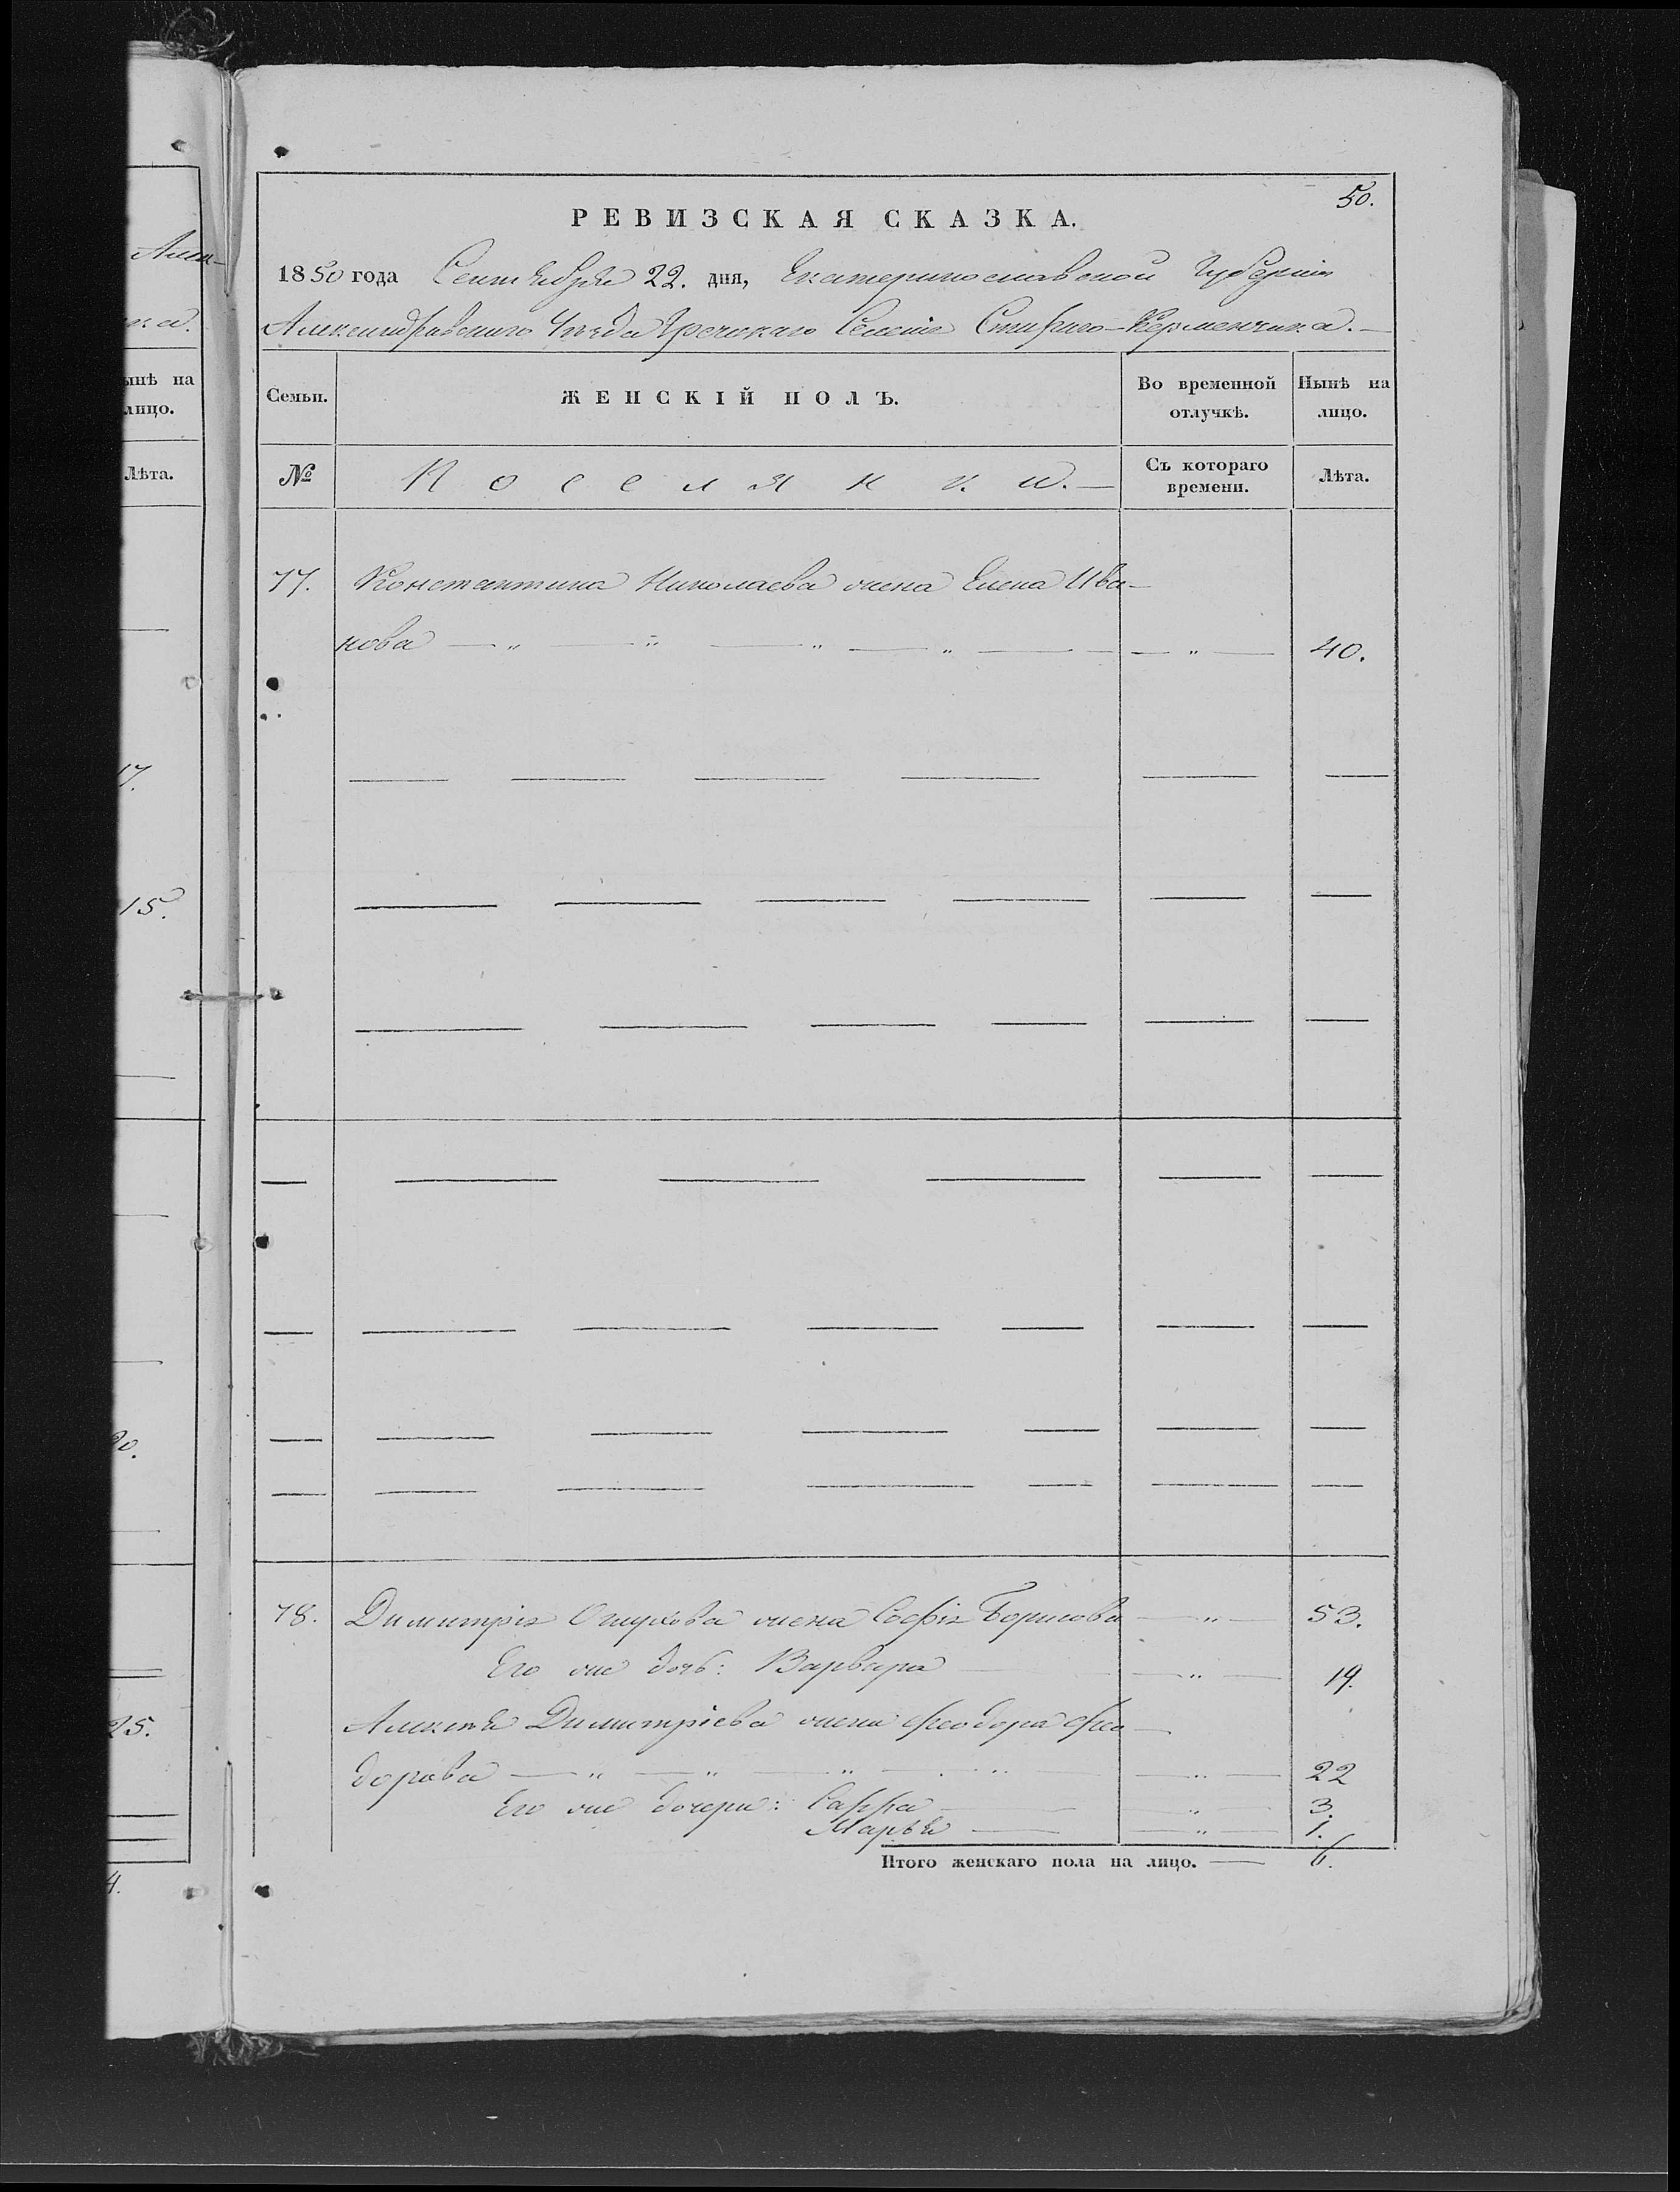 Алек-
ка.
ынѣ на
лицо.
Лѣта.
17.
15.
20.
25.
4.
50.
РЕВИЗСКАЯ СКАЗКА.
1850 года Сентября 22. дня, Екатеринославской Губерніи
Александровскаго Уѣзда Греческаго Селенія Стараго-Керменчика.—
Семьи.
ЖЕНСКІЙ ПОЛЪ.
Во временной отлучкѣ.
Нынѣ на лицо.
№
Поселянки.—
Съ котораго времени.
Лѣта.
77. Константина Николаева жена Елена Ива-
нова — " — " — " — " — — " — 40.
78. Димитрія жена Софія Борисова — " — 53.
Его же дочь: Варвара — " — 19.
Алексѣя Димитріева жена Феодора Фео-
дорова — " — " — " — " — 22
Его же дочери: Сарра — " — 3.
Марья — " — 1.
Итого женскаго пола на лицо. — 6.